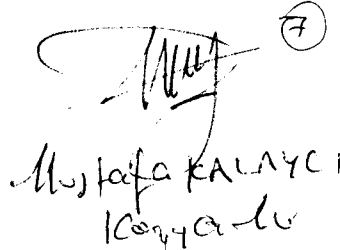 7
Mustafa KALAYCI
Konya Mv